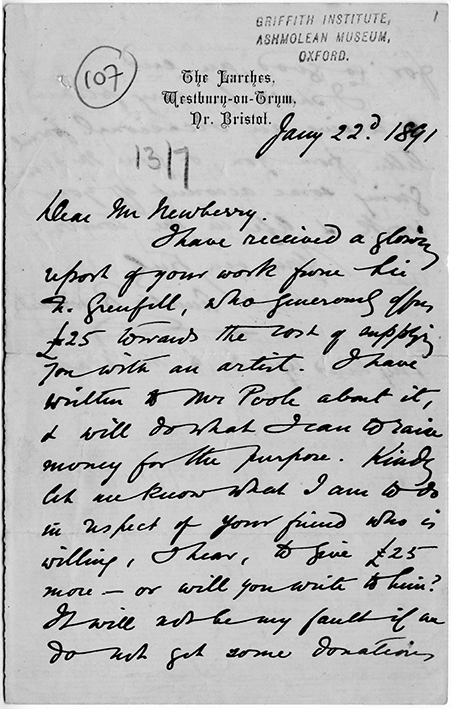 1
GRIFFITH INSTITUTE,
ASHMOLEAN MUSEUM,
OXFORD.
107
The Larches,
Westbury-on-Trym,
Nr. Bristol.
Jany 22d 1891
13/7
Dear Mr Newberry.
I have received a glowing
report of your work from Sir
F. Grenfell, who generously offers
£25 towards the cost of supplying
you with an artist. I have
written to Mr Poole about it,
& will do what I can to raise
money for the purpose. Kindly
let me know what I am to do
in respect of your friend who is
willing, I hear, to give £25
more — or will you write to him?
It will not be my fault if we
do not get some donations